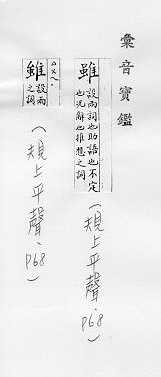 彙音寶鑑
雖 設兩詞也助語也不定
也況辭也推想之詞
(規上平聲、P68)
雖 設兩
之詞
(規上平聲、P68)